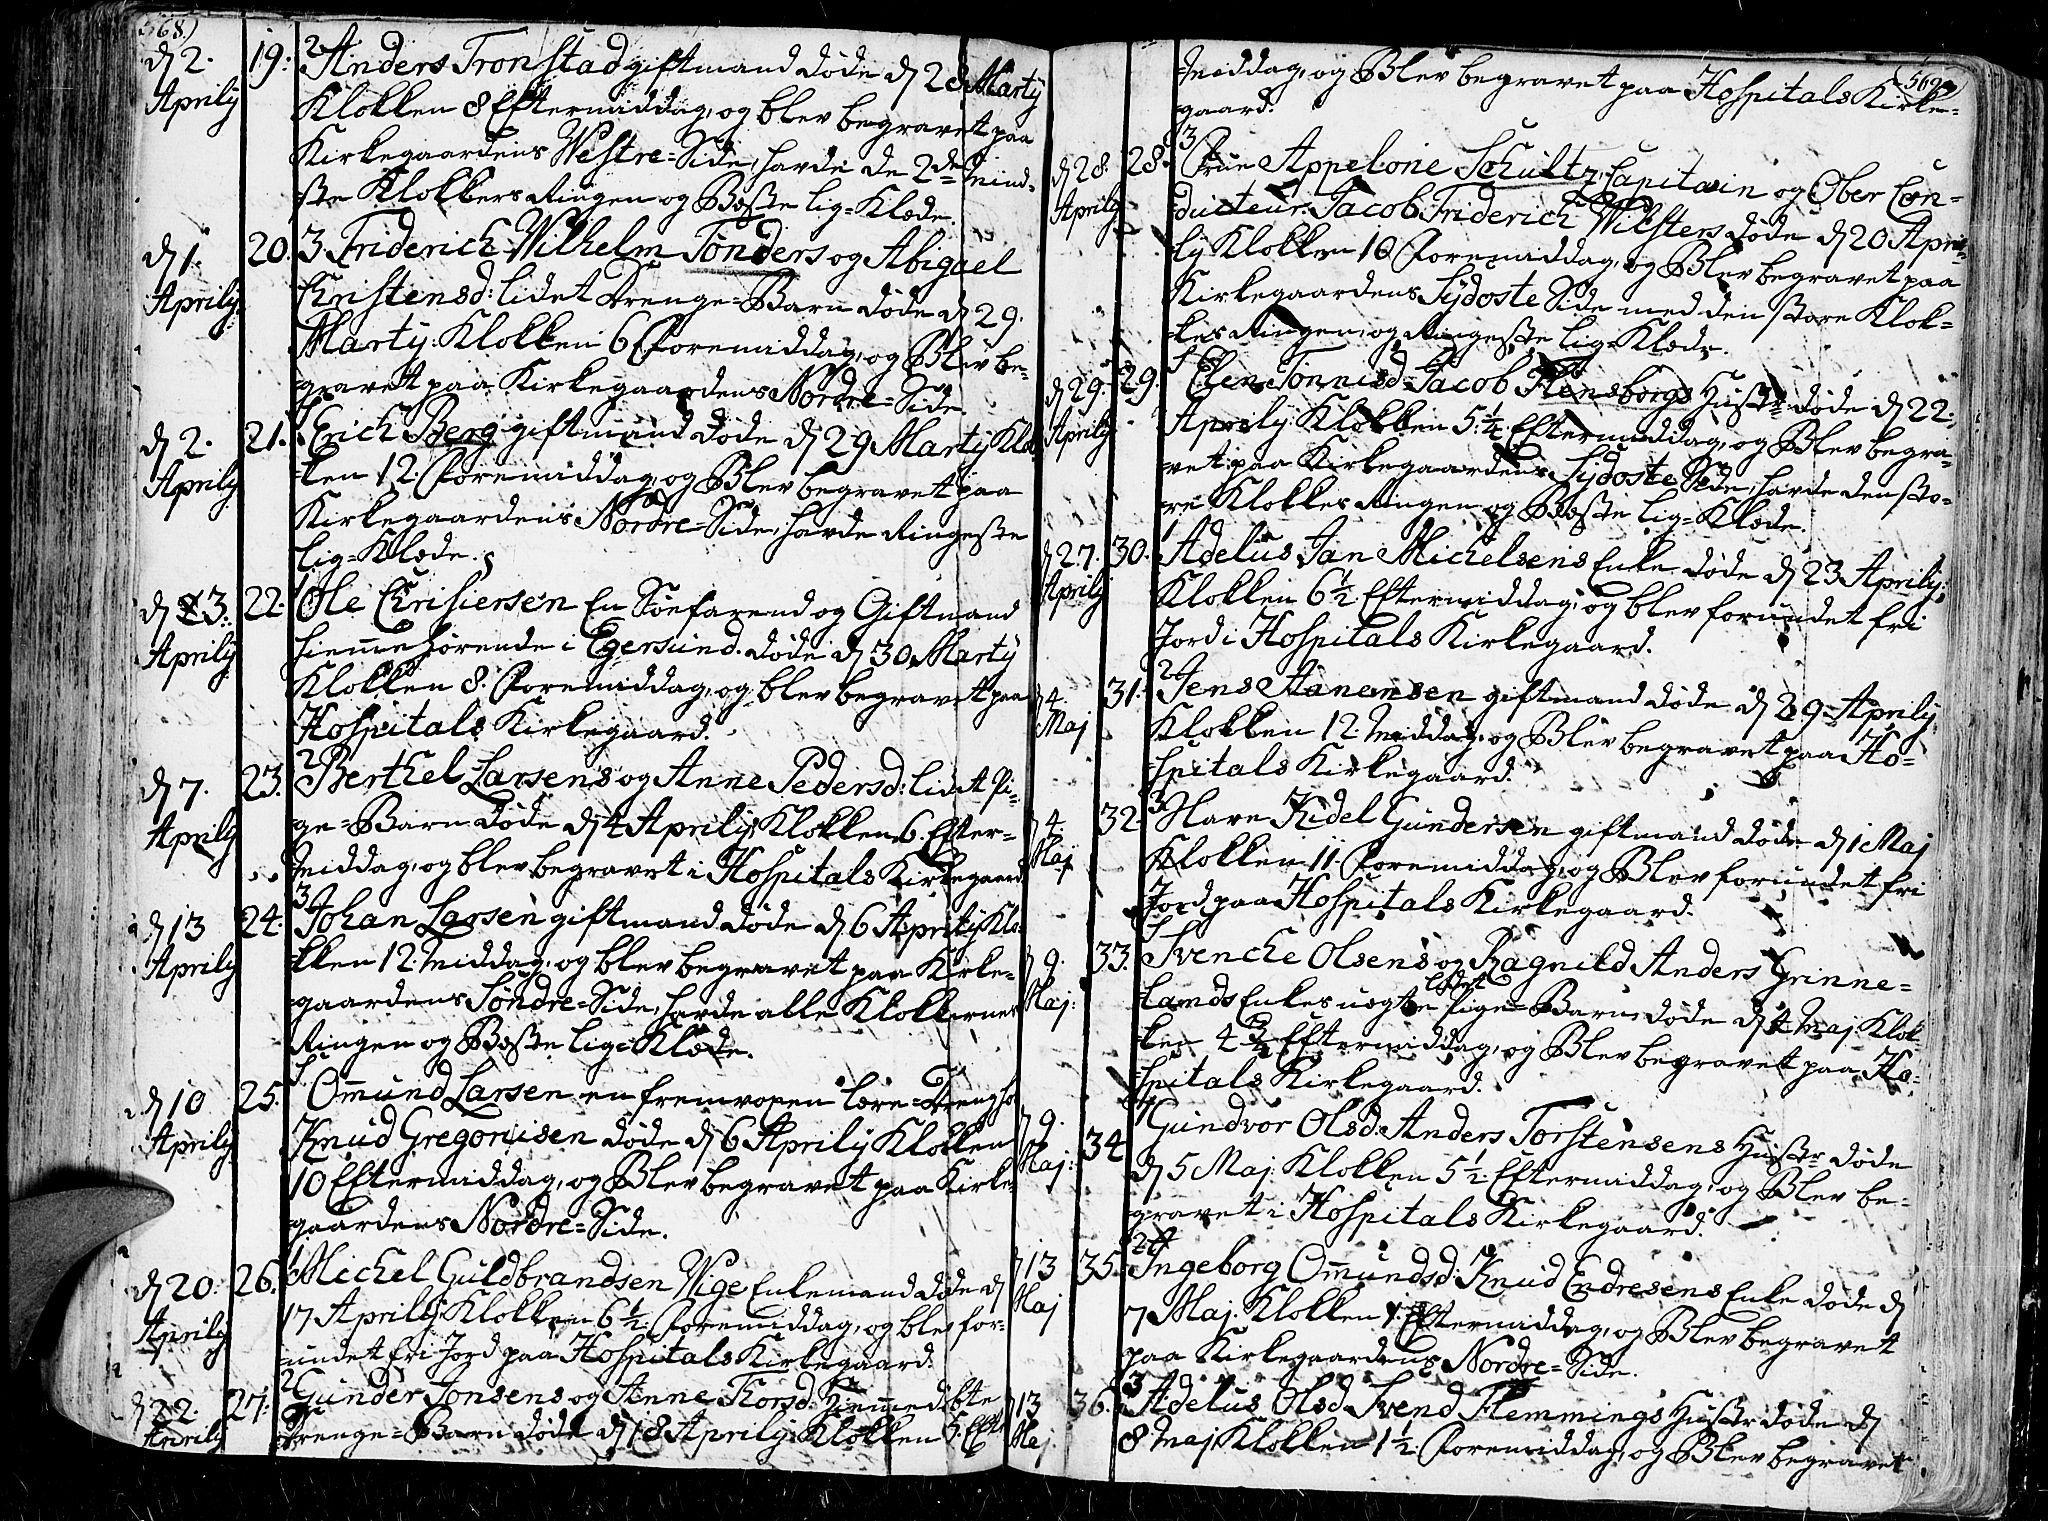 568.)
d 2. Aprily 19. 2 Anders Tronstad giftmand døde d 28 Marty
Klokken 8 Eftermiddag, og blev begravet paa
Kirkegaardens Westre=Side, havde de 2de mind=
ste Klokkers Ringen og Bæste Lig=Klæde.
d 1. Aprily. 20. 3 Friderich Wilhelm Tønders og Abigael
Christensd: lidet Drenge=Barn døde d 29.
Marty. Klokken 6 Formiddag, og Blev be=
gravet paa Kirkegaardens Nordre=Side.
d 2. Aprily 21. 4 Erich Berg giftmand døde d 29 Marty Klok
ken 12. Formiddag, og Blev begravet paa
Kirkegaardens Nordre=Side, havde Ringeste
Lig=Klæde.
d 3. Aprily 22. 1 Ole Christersen En Søefarend og Giftmand
hiemmehørende i Egersund. døde d 30 Marty
Klokken 8. Formiddag, og blev begravet paa
Hospitals Kirkegaard.
d 7. Aprily 23. 2 Berthel Larsens og Anne Pedersd: lidet Pi=
ge=Barn døde d 4 Aprily Klokken 6. Efter=
middag, og blev begravet i Hospitals Kirkegaard
d 13 Aprily 24. 3 Johan Larsen giftmand døde d 6 Aprily Klo=
kken 12. Middag, og blev begravet paa Kirke=
gaardens Søndre=Side, havde alle Klokkernes
Ringen og Bæste Lig=Klæde.
d 10 Aprily 25. Ommund Larsen en fremvoxen lære=Dreng hos
Knud Gregorisen døde d 6 Aprily Klokken
10 Eftermiddag, og Blev begravet paa Kirke=
gaardens Nordre=Side.
d 20. Aprily 26. 1 Michel Guldbrandsen Wige Enkemand døde d
17 Aprily Klokken 6½ Formiddag, og blev for=
undet fri Jord paa Hospitals Kirkegaard.
d 22. Aprily 27. 2 Gunder Jonsens og Anne Thorsd: hiemmedøbte
Drenge=Barn døde d 18 Aprily Klokken 5. Efter
569.
Middag, og Blev begravet paa Hospitals Kirke=
gaard.
d 28. Aprily 28. 3 Frue Appelone Schultz, Capitain og Ober Con=
ducteur Jacob Friderich Wilsters døde d 20 Apri=
ly Klokken 10 Formiddag, og Blev begravet paa
Kirkegaardens Sydoste Side med den store Klok=
kes Ringen og Ringeste Lig=Klæde.
d 29. Aprily 29. 4 Elen Tønnisd Jacob Flensborgs Hustr døde d 22.
Aprily Klokken 5¼ Eftermiddag, og Blev begra=
vet paa Kirkegaardens Sydoste Side, havde den sto=
re Klokkes Ringen og Bæste Lig=Klæde.
d 27. Aprily 30. 1 Adelus Jan Michelsens Enke døde d 23 Aprily,
Klokken 6½ Eftermiddag, og blev forundet fri
Jord i Hospitals Kirkegaard.
d 4 Maj 31. 2 Jens Aanensen giftmand døde d 29 Aprily,
Klokken 12. Middag, og Blev begravet paa Ho=
spitals Kirkegaard.
d 4. Maj 32. 3 Havr Kidel Gundersen giftmand døde d 1 Maj
Klokken 11. Formiddag, og Blev forundet fri
Jord paa Hospitals Kirkegaard.
d 9. Maj. 33. Svenche Olsens og Ragnild Anders Grinne=
lands Enkes uægte lidet Pige=Barn døde d 4 Maj. Klok=
ken 4¾ Eftermiddag, og Blev begravet paa Ho=
spitals Kirkegaard.
d 9. Maj. 34 Gundvor Olsd. Anders Torstensens Hustr døde
d 5 Maj. Klokken 5½ Eftermiddag, og Blev be=
gravet i Hospitals Kirkegaard.
d 13 Maj 35. 2 Ingeborg Ommundsd: Knud Endresens Enke døde d
7 Maj. Klokken 1. Eftermiddag, og Blev begravet
paa Kirkegaardens Nordre=Side.
d 13 Maj 36. 3 Adelus Olsd. Svend Flemmings Hustr døde d
8 Maj Klokken 1½ Formiddag, og Blev begravet